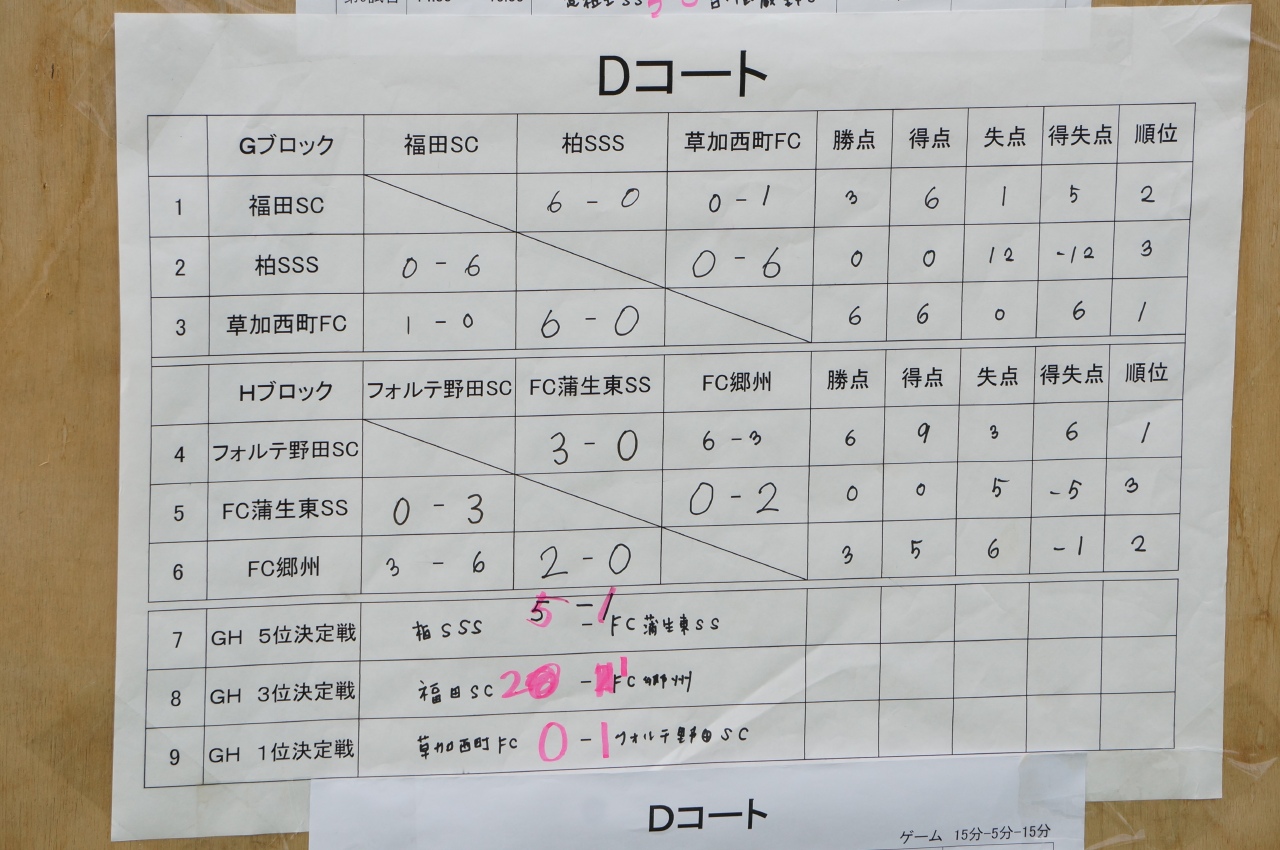 Dコート
Gブロック 福田SC 柏SSS 草加西町FC 勝点 得点 失点 得失点 順位
1 福田SC 6 - 0 0 - 1 3 6 1 5 2
2 柏SSS 0 - 6 0 - 6 0 0 12 -12 3
3 草加西町FC 1 - 0 6 - 0 6 6 0 6 1
Hブロック フォルテ野田SC FC蒲生東SS FC郷州 勝点 得点 失点 得失点 順位
4 フォルテ野田SC 3 - 0 6 - 3 6 9 3 6 1
5 FC蒲生東SS 0 - 3 0 - 2 0 0 5 -5 3
6 FC郷州 3 - 6 2 - 0 3 5 6 -1 2
7 GH 5位決定戦 柏SSS 5 - 1 FC蒲生東SS
8 GH 3位決定戦 福田SC 2 - 1 FC郷州
9 GH 1位決定戦 草加西町FC 0 - 1 フォルテ野田SC
Dコート
ゲーム 15分-5分-15分